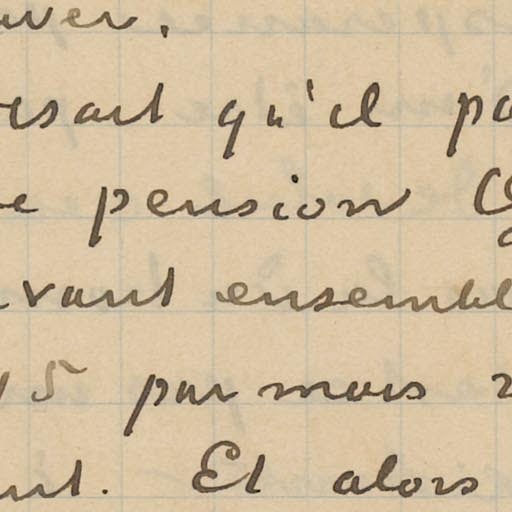 uver.
isait qu'il pa
e pension
vant ensembl
15 par mois
nt. Et alors